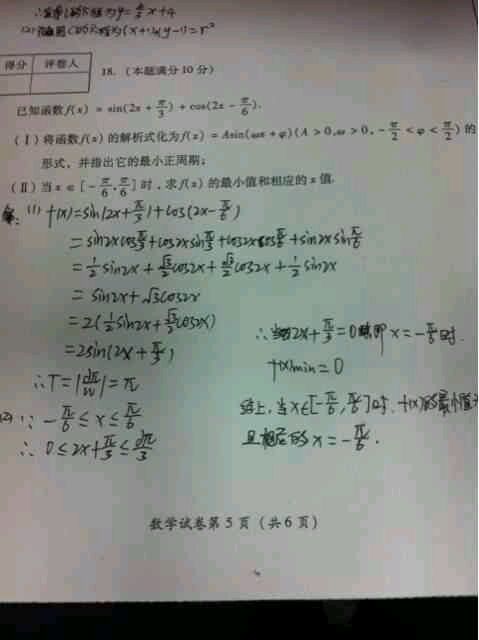 x+4
得分 评卷人
18.（本题满分10分）
已知函数f(x) = sin(2x + π/3) + cos(2x − π/6).
（Ⅰ）将函数f(x)的解析式化为f(x) = Asin(ωx + φ)(A > 0,ω > 0, −π/2 < φ < π/2)的
形式，并指出它的最小正周期；
（Ⅱ）当x∈[−π/6,π/6]时，求f(x)的最小值和相应的x值.
解：(1) f(x)=sin(2x+π/3)+cos(2x-π/6)
=sin2xcosπ/3+cos2xsinπ/3+cos2xcosπ/6+sin2xsinπ/6
=1/2sin2x+√3/2cos2x+√3/2cos2x+1/2sin2x
=sin2x+√3cos2x
=2(1/2sin2x+√3/2cos2x)
=2sin(2x+π/3)
∴T=|2π/w|=π
(2)∵-π/6≤x≤π/6
∴0≤2x+π/3≤2π/3
∴当2x+π/3=0即x=-π/6时.
f(x)min=0
综上，当x∈[-π/6,π/6]时，f(x)的最小值
且相应的x=-π/6.
数学试卷第5页（共6页）